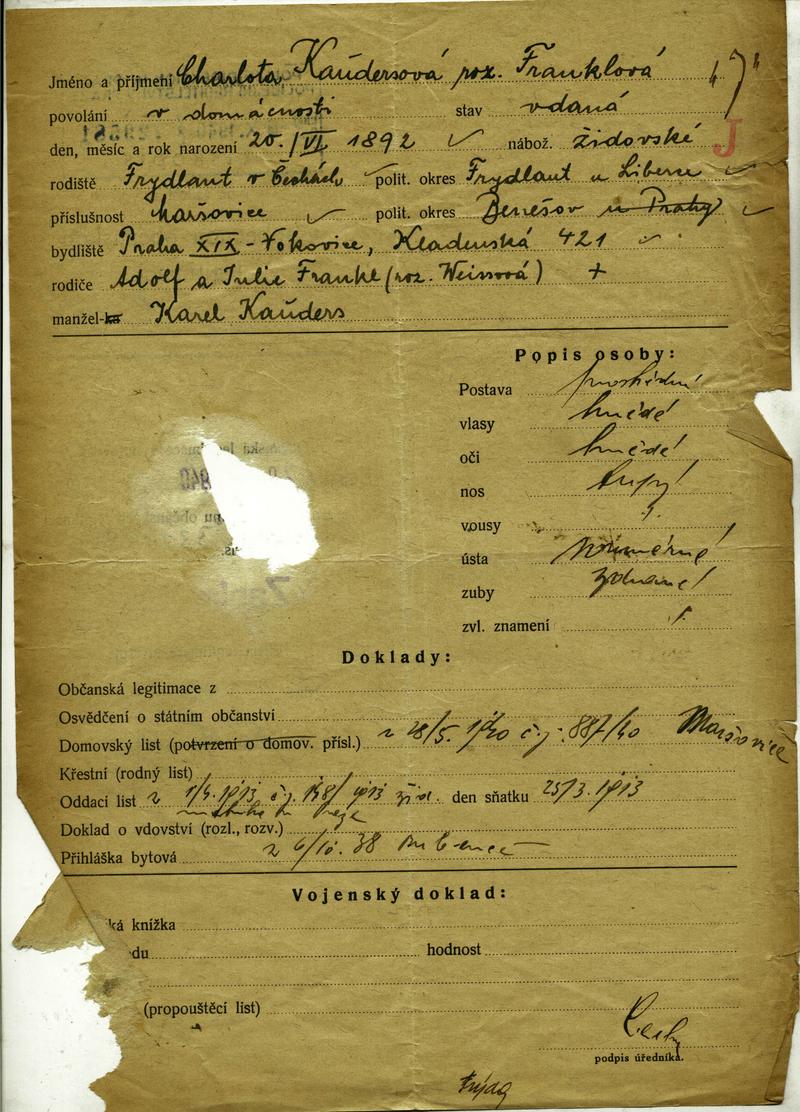 Jméno a příjmení Charlota Kaudersová roz. Franklová
povolání v domácnosti stav vdaná
den, měsíc a rok narození 20./VI 1892 nábož. židovské J
rodiště Frydlant v Čechách polit. okres Frydlant u Liberce
příslušnost Maršovice polit. okres Benešov u Prahy
bydliště Praha XIX - Vokovice, Kladenská 421
rodiče Adolf a Julie Frankl (roz. Weissová) +
manžel-ka Karel Kauders
Popis osoby:
Postava prostřední
vlasy hnědé
oči hnědé
nos tupý
vousy
ústa souměrné
zuby
zvl. znamení
Doklady:
Občanská legitimace z
Osvědčení o státním občanství
Domovský list (potvrzení o domov. přísl.) z 28/5. 1940 č.j. 887/40 Maršovice
Křestní (rodný list)
Oddací list z 1/4. 1913 č.j. 148/1913 žid. den sňatku 25/3. 1913
Doklad o vdovství (rozl., rozv.)
Přihláška bytová z 6/10. 38
Vojenský doklad:
ká knížka
du hodnost
(propouštěcí list)
podpis úředníka.